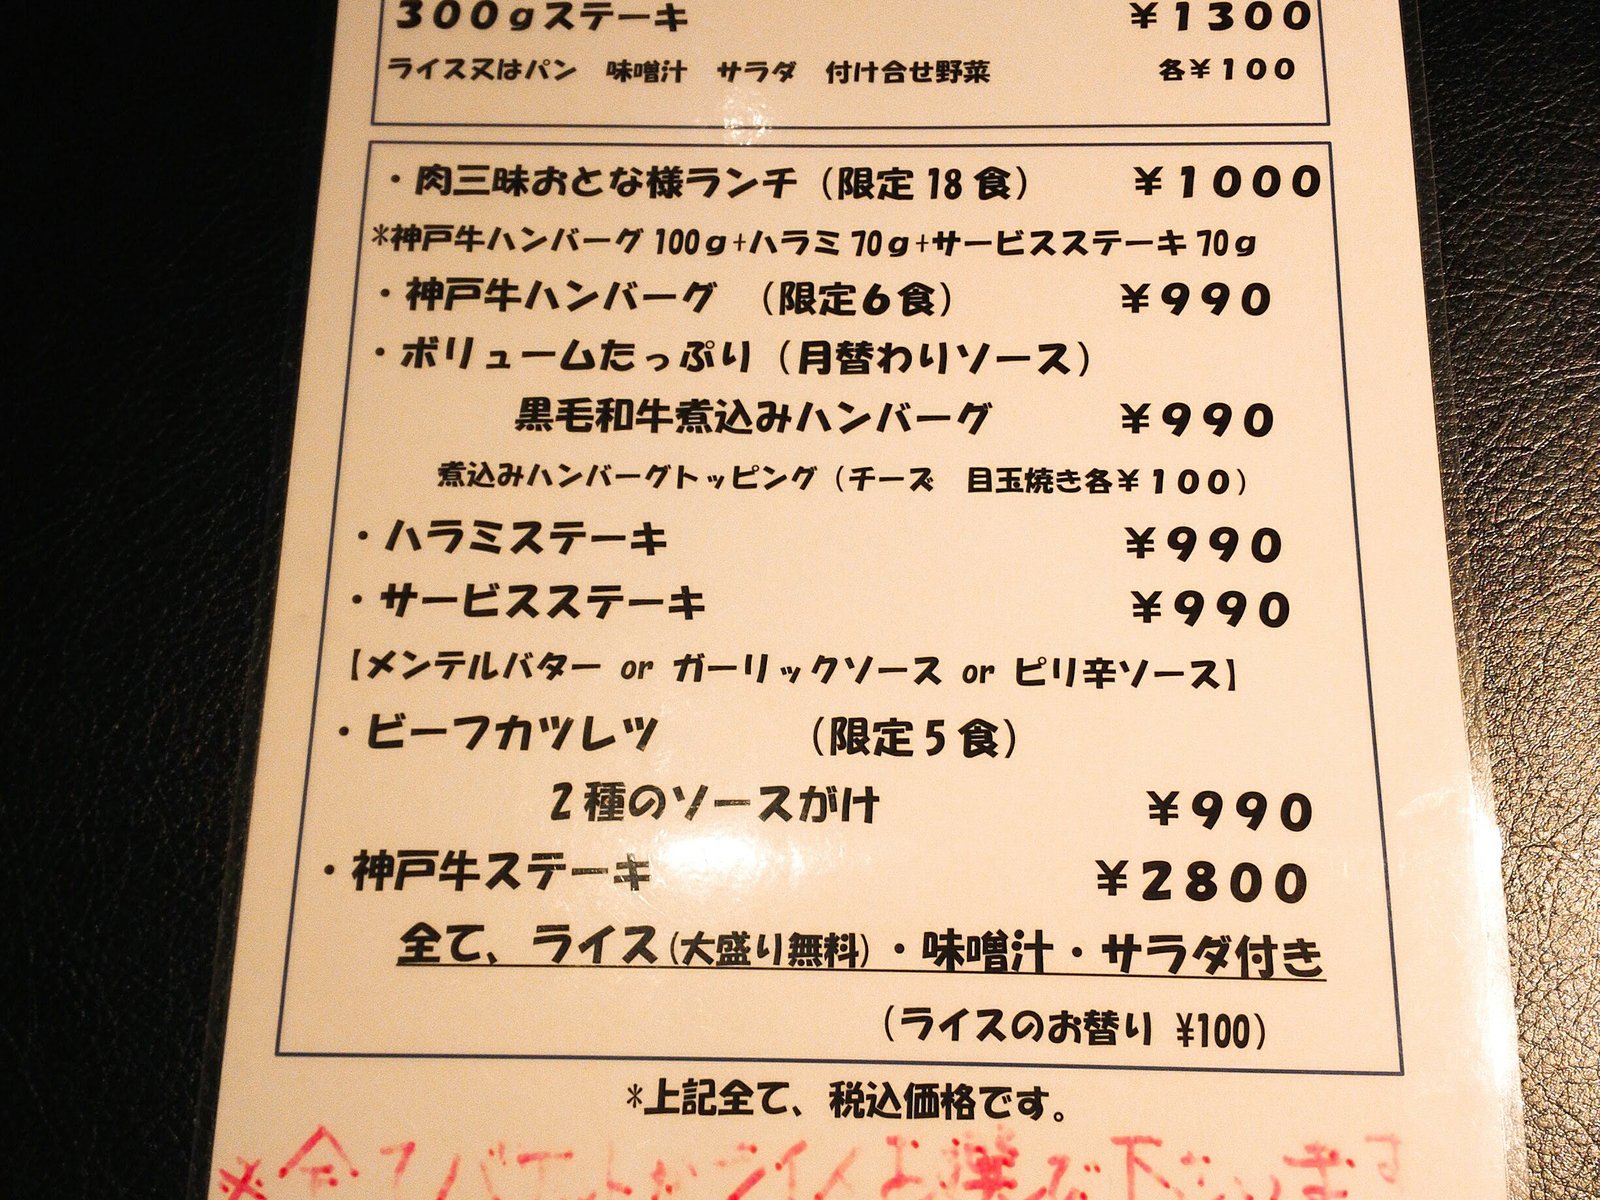 300gステーキ ¥1300
ライス又はパン 味噌汁 サラダ 付け合せ野菜 各¥100
・肉三昧おとな様ランチ（限定18食） ¥1000
*神戸牛ハンバーグ100g+ハラミ70g+サービスステーキ70g
・神戸牛ハンバーグ （限定6食） ¥990
・ボリュームたっぷり（月替わりソース）
黒毛和牛煮込みハンバーグ ¥990
煮込みハンバーグトッピング（チーズ 目玉焼き各¥100）
・ハラミステーキ ¥990
・サービスステーキ ¥990
【メンテルバター or ガーリックソース or ピリ辛ソース】
・ビーフカツレツ （限定5食）
2種のソースがけ ¥990
・神戸牛ステーキ ¥2800
全て、ライス(大盛り無料)・味噌汁・サラダ付き
（ライスのお替り ¥100）
*上記全て、税込価格です。